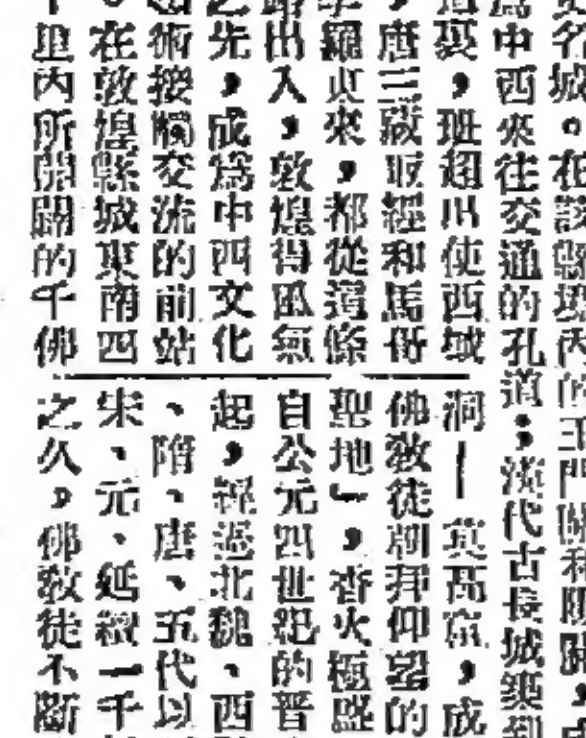 名城。在該縣境內的玉門關和陽關,
爲中西來往交通的孔道;漢代古長城築到
道裏,班超出使西域
,唐三藏取經和馬哥
羅東來,都從這條
路出入,敦煌得風氣
之先,成爲中西文化
術接觸交流的前站
在敦煌縣城東南四
里內所開闢的千佛
洞—莫高窟,成
佛敎徒朝拜仰望的
聖地」,香火極盛
自公元四世紀的晉
起,經過北魏、西
、隋、唐、五代以
宋、元、延續一千
之久,佛敎徒不斷